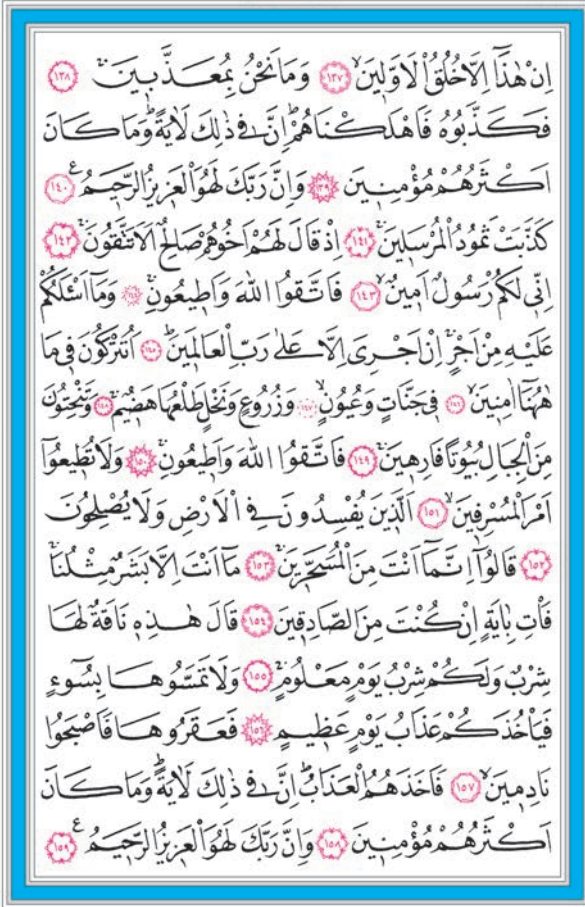 اِنْ هٰذَٓا اِلَّا خُلُقُ الْاَوَّل۪ينَۙ ﴿١٣٧﴾ وَمَا نَحْنُ بِمُعَذَّب۪ينَۚ ﴿١٣٨﴾
فَكَذَّبُوهُ فَاَهْلَكْنَاهُمْۜ اِنَّ ف۪ي ذٰلِكَ لَاٰيَةًۜ وَمَا كَانَ
اَكْثَرُهُمْ مُؤْمِن۪ينَ ﴿١٣٩﴾ وَاِنَّ رَبَّكَ لَهُوَ الْعَز۪يزُ الرَّح۪يمُ۟ ﴿١٤٠﴾
كَذَّبَتْ ثَمُودُ الْمُرْسَل۪ينَۚ ﴿١٤١﴾ اِذْ قَالَ لَهُمْ اَخُوهُمْ صَالِحٌ اَلَا تَتَّقُونَۚ ﴿١٤٢﴾
اِنّ۪ي لَكُمْ رَسُولٌ اَم۪ينٌۙ ﴿١٤٣﴾ فَاتَّقُوا اللّٰهَ وَاَط۪يعُونِۚ ﴿١٤٤﴾ وَمَٓا اَسْـَٔلُكُمْ
عَلَيْهِ مِنْ اَجْرٍۚ اِنْ اَجْرِيَ اِلَّا عَلٰى رَبِّ الْعَالَم۪ينَۜ ﴿١٤٥﴾ اَتُتْرَكُونَ ف۪ي مَا
هٰهُنَٓا اٰمِن۪ينَۙ ﴿١٤٦﴾ ف۪ي جَنَّاتٍ وَعُيُونٍۙ ﴿١٤٧﴾ وَزُرُوعٍ وَنَخْلٍ طَلْعُهَا هَض۪يمٌۚ ﴿١٤٨﴾ وَتَنْحِتُونَ
مِنَ الْجِبَالِ بُيُوتًا فَارِه۪ينَۚ ﴿١٤٩﴾ فَاتَّقُوا اللّٰهَ وَاَط۪يعُونِۚ ﴿١٥٠﴾ وَلَا تُط۪يعُٓوا
اَمْرَ الْمُسْرِف۪ينَۙ ﴿١٥١﴾ اَلَّذ۪ينَ يُفْسِدُونَ فِي الْاَرْضِ وَلَا يُصْلِحُونَ
﴿١٥٢﴾ قَالُٓوا اِنَّمَٓا اَنْتَ مِنَ الْمُسَحَّر۪ينَۚ ﴿١٥٣﴾ مَٓا اَنْتَ اِلَّا بَشَرٌ مِثْلُنَاۚ
فَأْتِ بِاٰيَةٍ اِنْ كُنْتَ مِنَ الصَّادِق۪ينَ ﴿١٥٤﴾ قَالَ هٰذِه۪ نَاقَةٌ لَهَا
شِرْبٌ وَلَكُمْ شِرْبُ يَوْمٍ مَعْلُومٍۚ ﴿١٥٥﴾ وَلَا تَمَسُّوهَا بِسُٓوءٍ
فَيَأْخُذَكُمْ عَذَابُ يَوْمٍ عَظ۪يمٍ ﴿١٥٦﴾ فَعَقَرُوهَا فَاَصْبَحُوا
نَادِم۪ينَۙ ﴿١٥٧﴾ فَاَخَذَهُمُ الْعَذَابُۜ اِنَّ ف۪ي ذٰلِكَ لَاٰيَةًۜ وَمَا كَانَ
اَكْثَرُهُمْ مُؤْمِن۪ينَ ﴿١٥٨﴾ وَاِنَّ رَبَّكَ لَهُوَ الْعَز۪يزُ الرَّح۪يمُ۟ ﴿١٥٩﴾